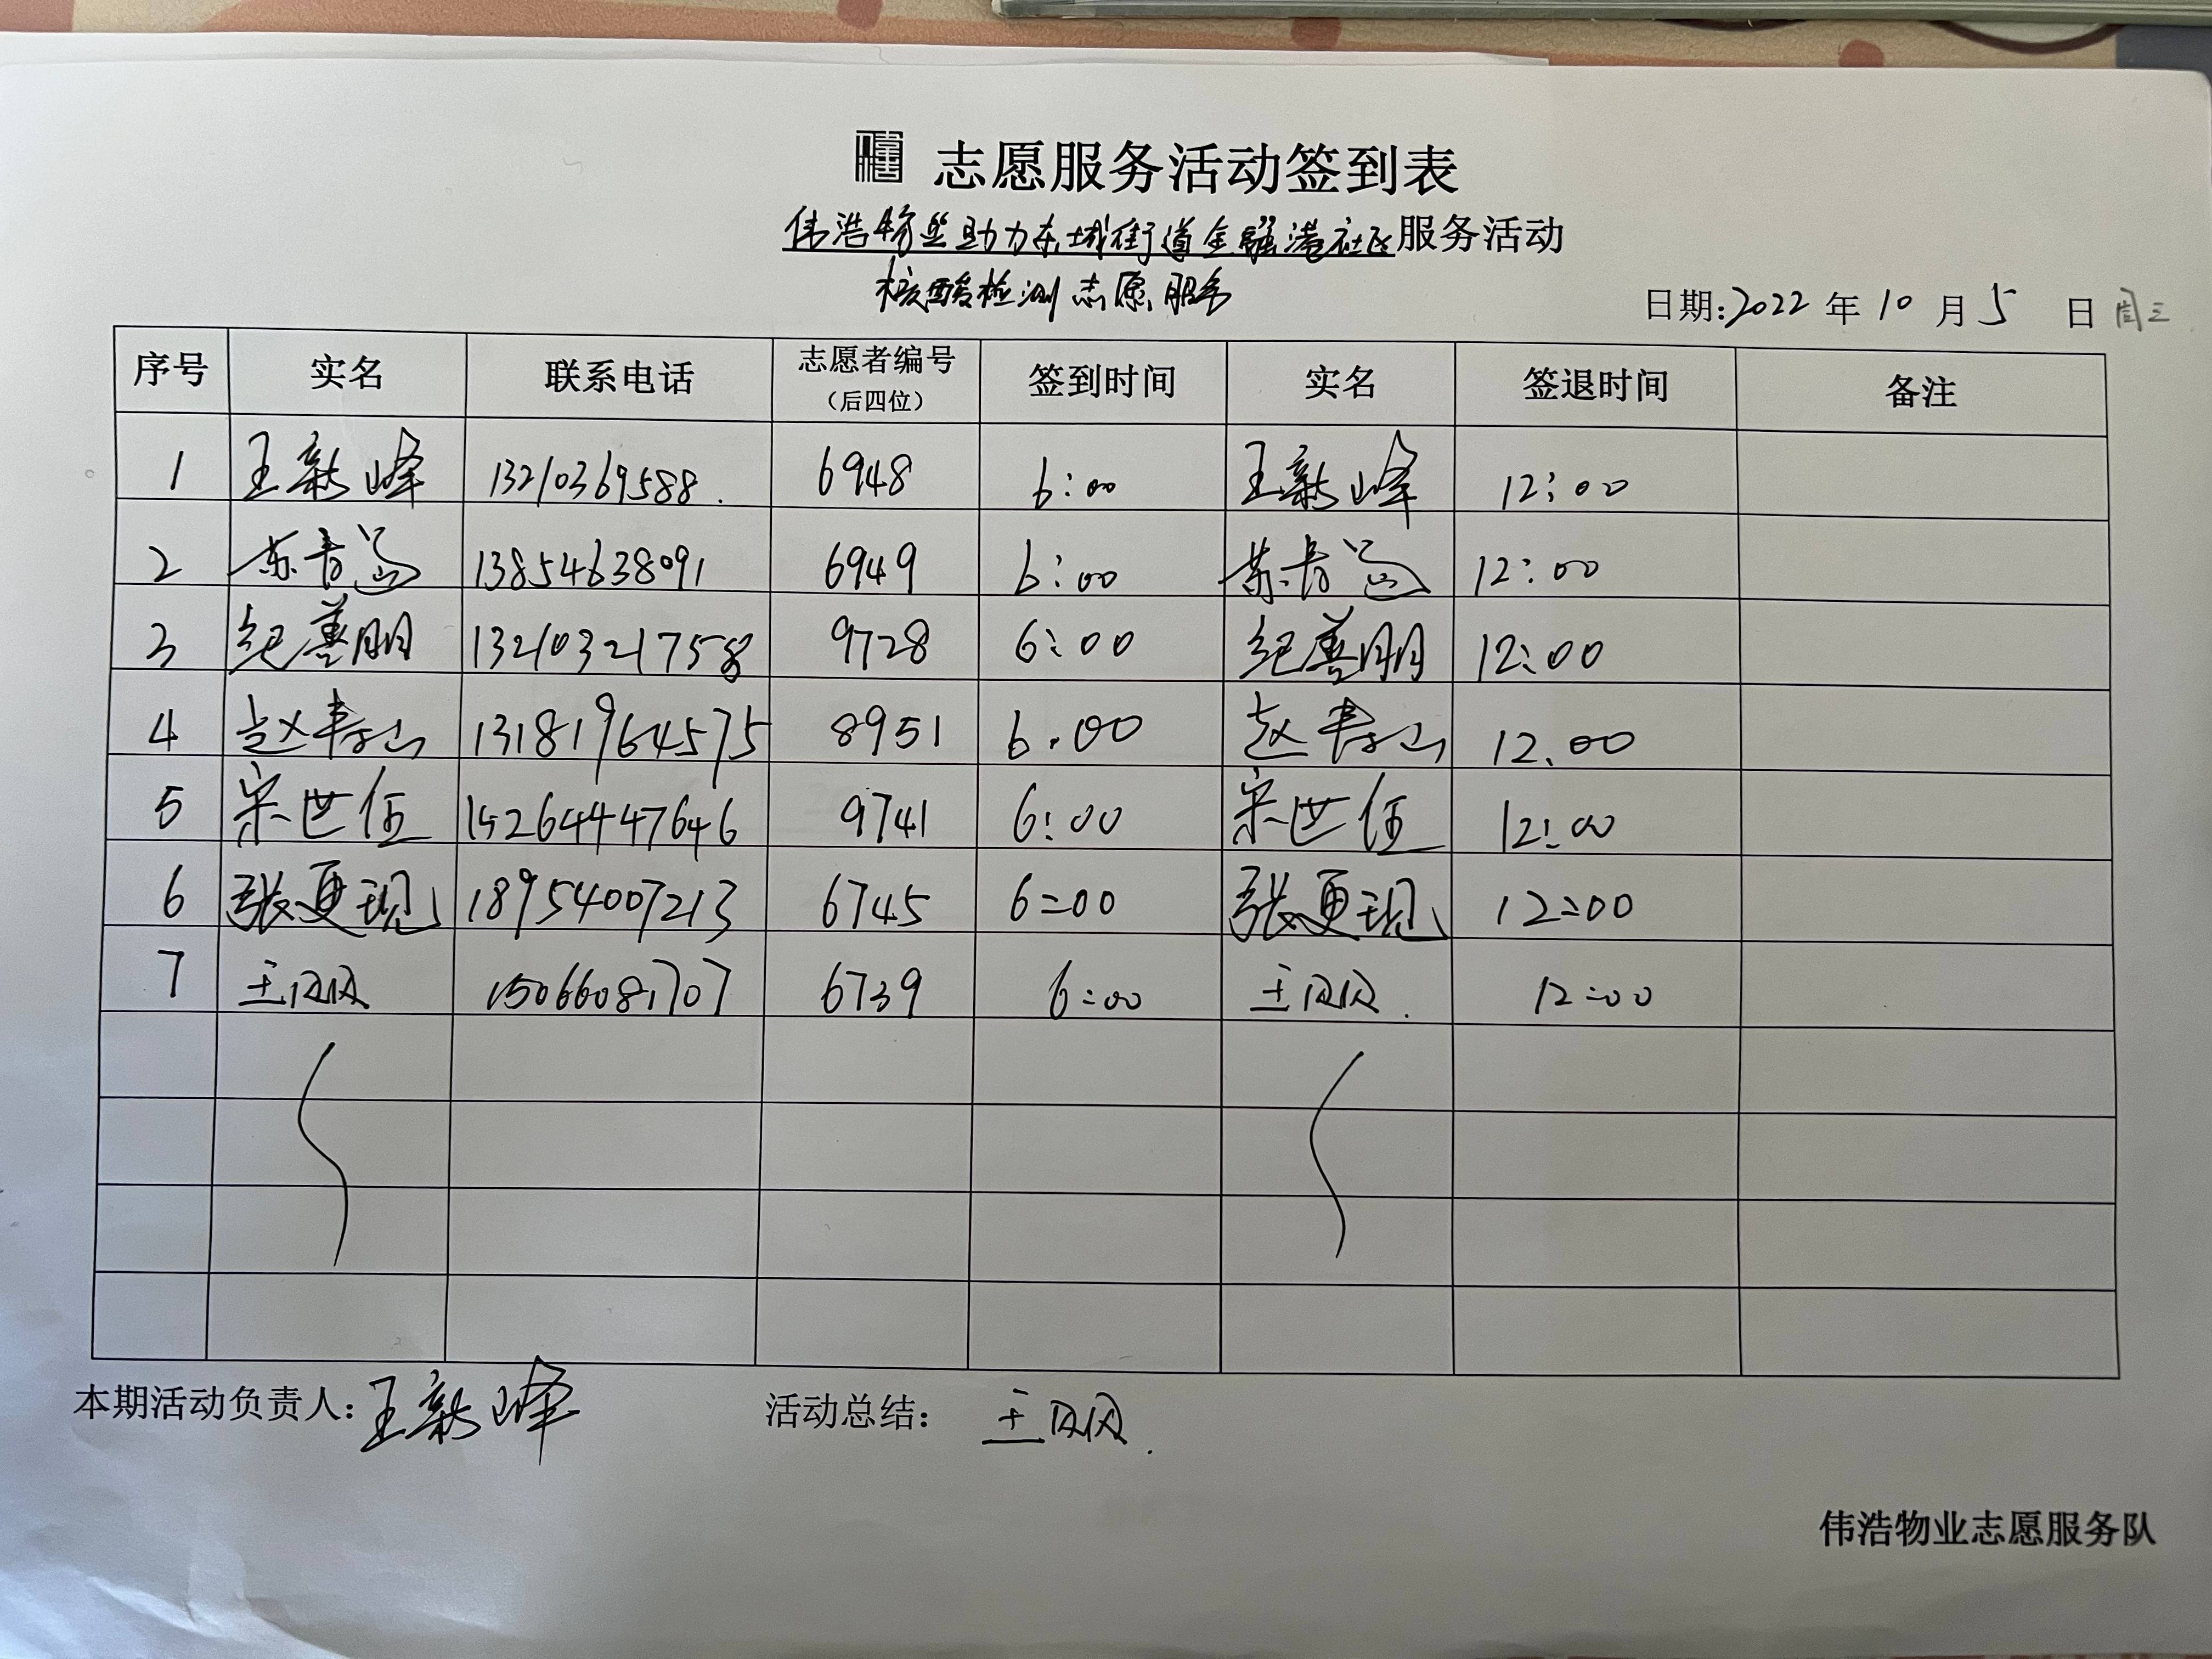 志愿服务活动签到表
伟浩物业助力东城街道金融港社区服务活动
核酸检测志愿服务
日期:2022年10月5日 周三
序号 实名 联系电话 志愿者编号（后四位） 签到时间 实名 签退时间 备注
1 王新峰 13210369588. 6948 6:00 王新峰 12:00
2 苏春 13854638091 6949 6:00 苏春 12:00
3 纪善朋 13210321758 9728 6:00 纪善朋 12:00
4 赵寿山 13181964575 8951 6.00 赵寿山 12.00
5 宋世伍 15264447646 9741 6:00 宋世伍 12:00
6 张更现 18954007213 6745 6:00 张更现 12:00
7 王 15066081707 6739 6:00 王 12:00
本期活动负责人:王新峰 活动总结: 王
伟浩物业志愿服务队